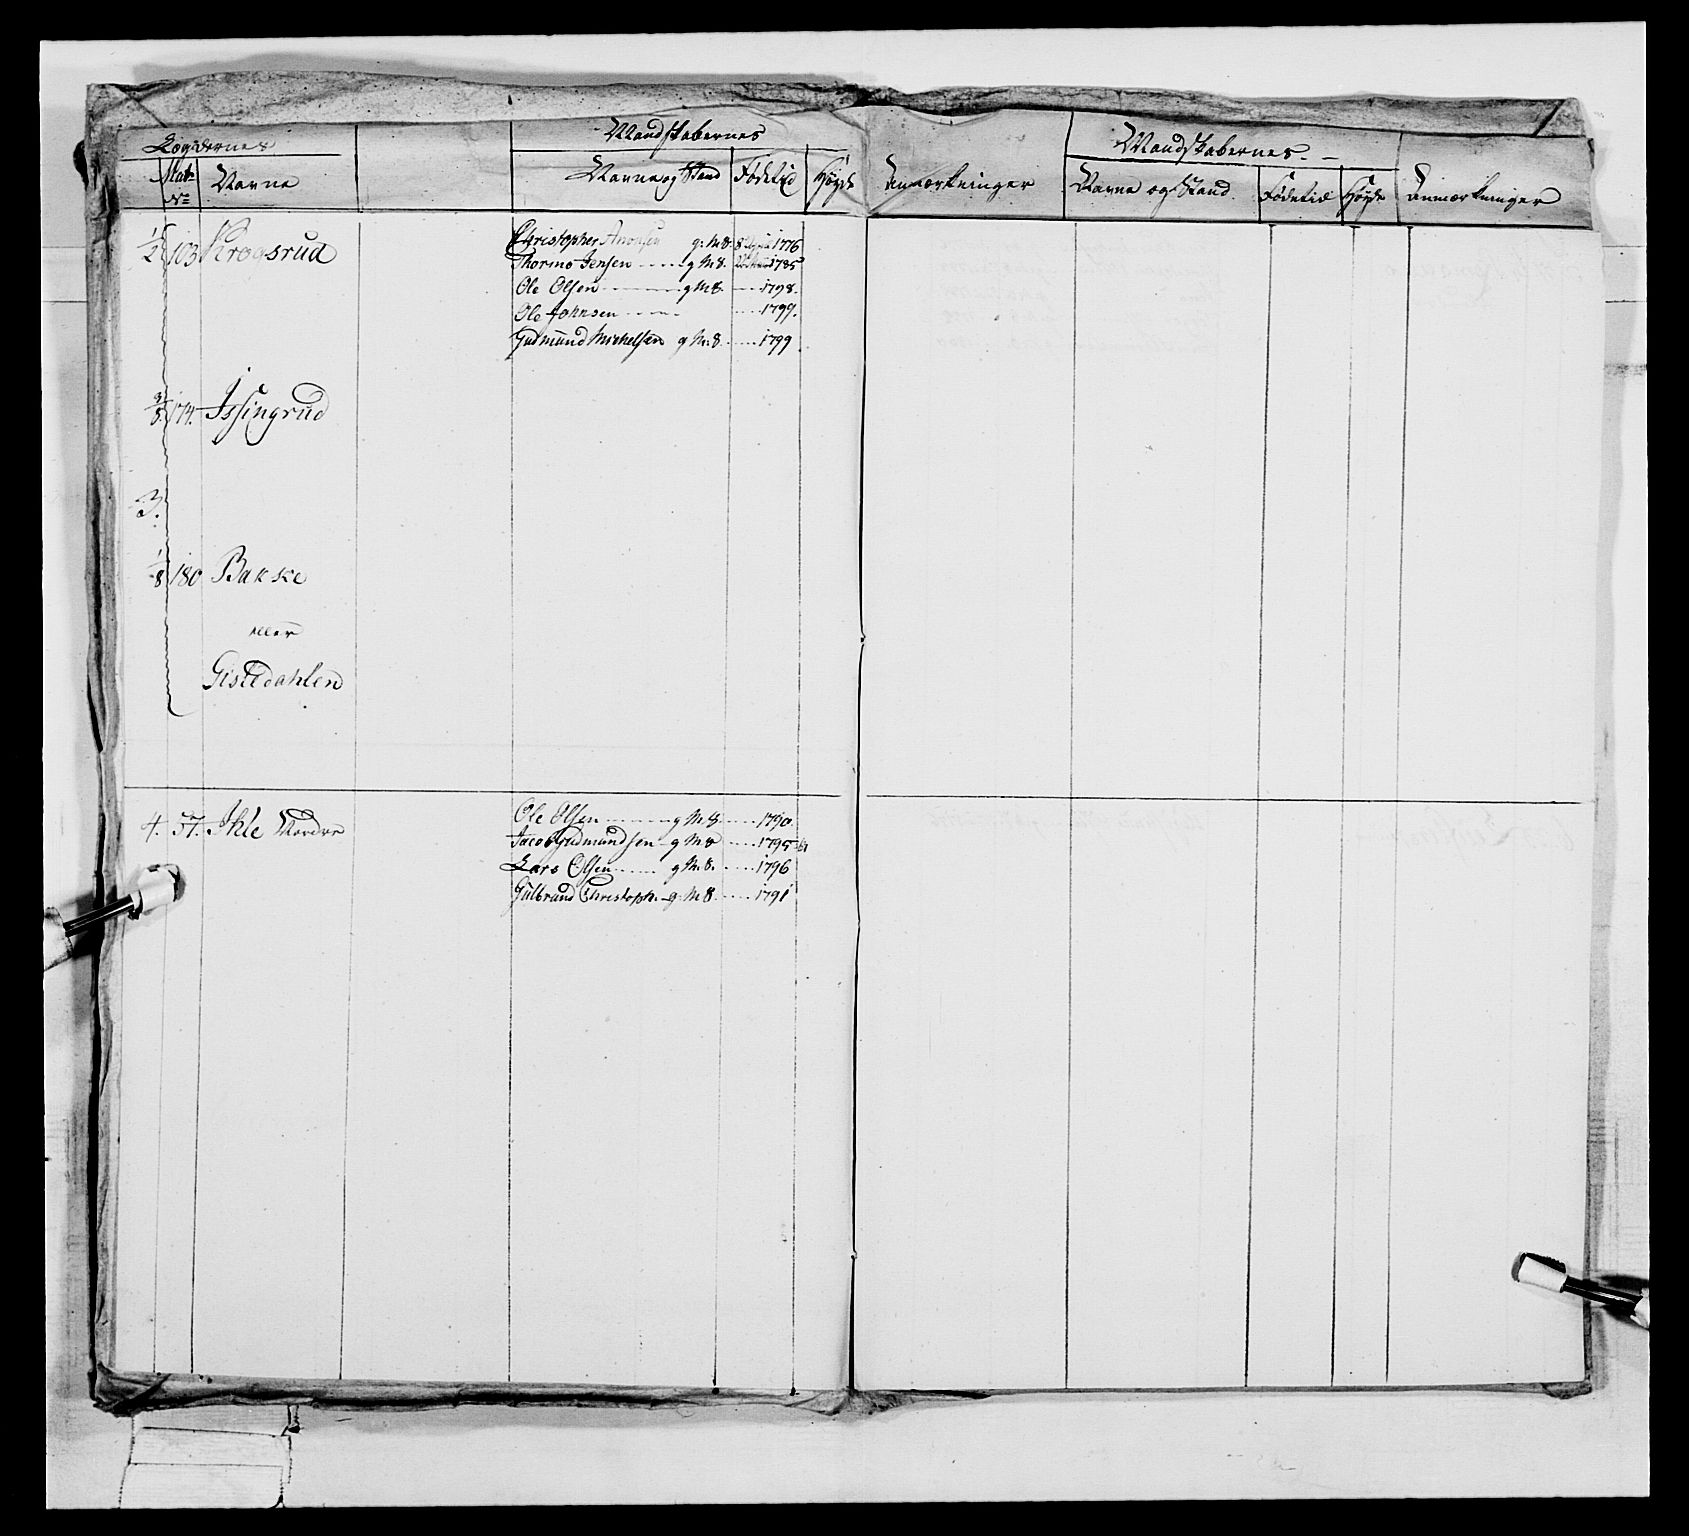 Lægdernes
Mandskabernes
Mandskabernes
Mat. No
Navne
Navne og Stand
Fødetid
Høyde
Anmærkninger
Navne og Stand
Fødetid
Høyde
Anmærkninger
1/2 103 Krogsrud
Christopher g: M 8. 8 1776
Thormo Jensen g M 8. 1785
Ole Olsen g M 8. 1798.
Ole Johnsen 1799.
Gudmund Michelsen g M. 8. 1799
3/8 174. Issingrud
3.
1/8 180 Bakke
eller
Gistedahlen
4. 57. Ihle Nordre
Ole Olsen g M 8. 1790
Jacob Gudmundsen g M 8 1795
Lars Olsen g M. 8. 1796
Gulbrand Christoph. g: M 8. 1791